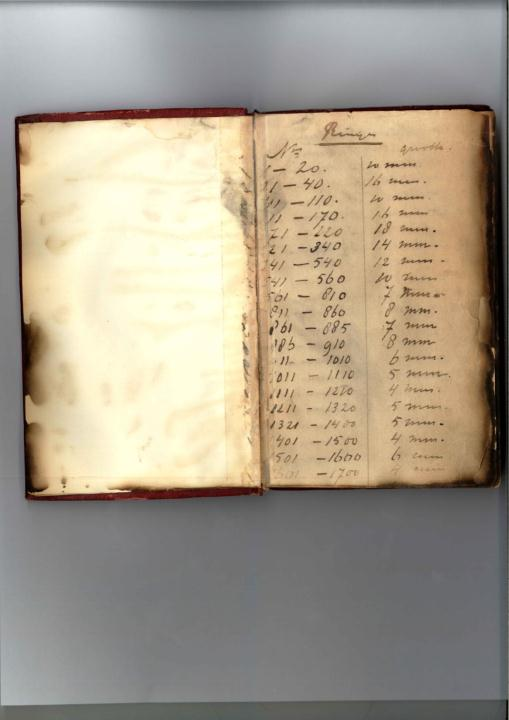 Ringe
No grootte.
1 – 20. 10 mm
21 – 40. 16 mm.
41 – 110. 10 mm.
111 – 170. 16 mm.
171 – 220 18 mm.
221 – 340 14 mm.
341 – 540 12 mm.
541 – 560 10 mm
561 – 810 7 mm
811 – 860 8 mm.
861 – 885 7 mm
886 – 910 8 mm
911 – 1010 6 mm.
1011 – 1110 5 mm.
1111 – 1210 4 mm.
1211 – 1320 5 mm.
1321 – 1400 5 mm.
1401 – 1500 4 mm.
1501 – 1600 6 mm
– 1700 4 mm